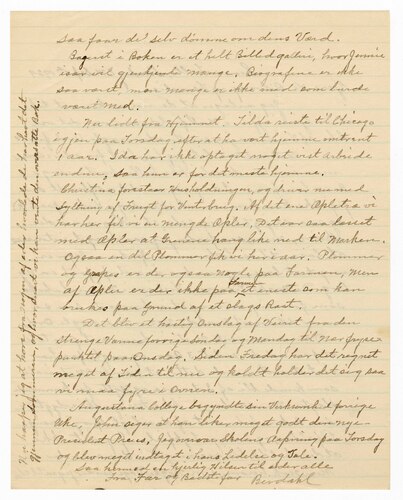 saa faar de selv dömme om dens Værd.
Bagest i Boken er et helt Billedgalleri, hvor Jennie
især vil gjenkjende mange. Biografierne er ikke
saa svært, men mange er ikke med som burde
været med.
Nu lidt fra Hjemmet. Tilda reiste til Chicago
igjen paa Torsdag efter at ha vært hjemme omtrent
1 aar. Ida har ikke optaget noget vist Arbeide
endnu, saa hun er for det meste hjemme.
Christina forestaar Husholdningen, og driver nu med
Syltning af Frugt for Vinterbrug. Af det ene Apletræ vi
har her fik vi en mengde Apler. Det var saa læsset
med Apler at Grenene hang like ned til Marken.
Ogsaa en del Plommer fik vi her i aar. Plommer
og Grapes er der ogsaa nogle paa Farmen, men
af Apler er der ikke paa Farmen et eneste som kan
brukes paa Grund af et slags Rust.
Det blev et hastig Omslag af Veiret fra den
strenge Varme forrige Söndag og Mandag til nær Fryse-
punktet paa Onsdag. Siden Fredag har det regnet
meget af Tiden til nu og koldt holder det sig saa
vi maa fyre i Ovnen.
Augustana College begyndte sin Virksomhed forrige
Uke. John siger at han liker meget godt den nye
President Preus. Jeg overvar Skolens Aapning paa Torsdag
og blev meget indtaget i hans Ledelse og Tale.
Saa hermed en hjertlig Hilsen til eder alle
Fra Far og Bedstefar
Berdahl